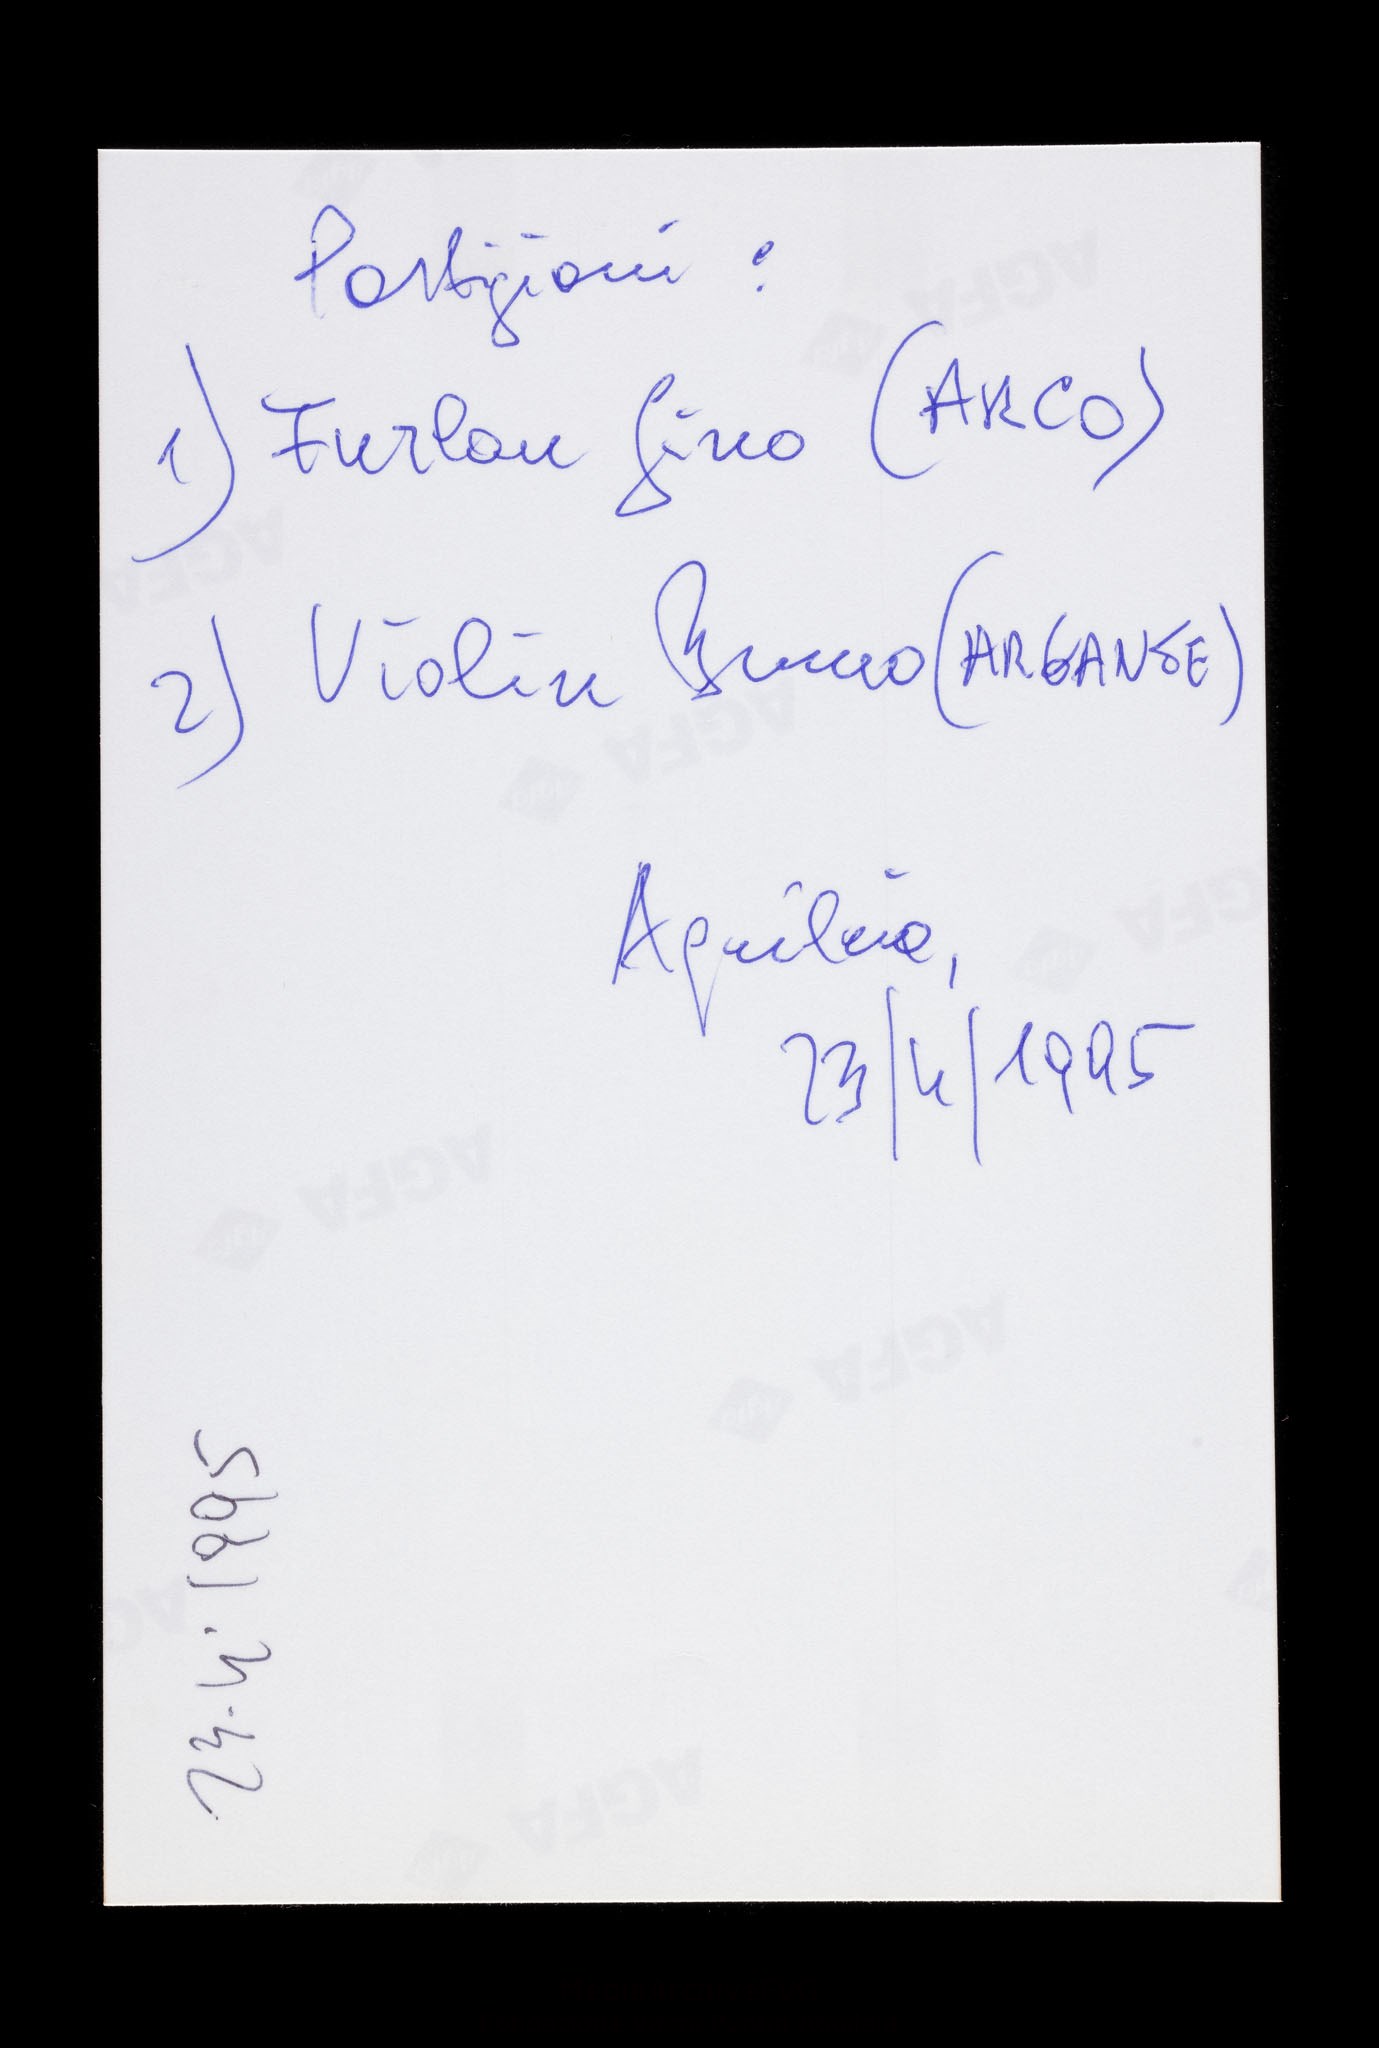 Partigiani :
1) Furlan Gino (ARCO)
2) Violin Bruno (ARGANTE)
Aquileia,
23/4/1995
23.4.1995
AGFA
AGFA
AGFA
AGFA
AGFA
AGFA
AGFA